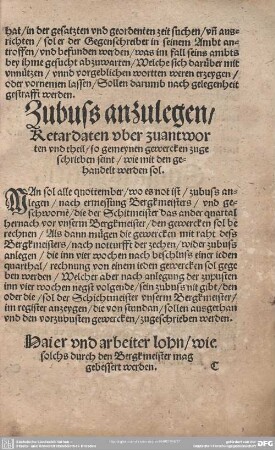 hat/ in der gesatzten vnd geordenten zeit suchen/ vñ aus-
richten/ sol er der Gegenschreiber in seinem Ambt an-
troffen/ vnd befunden werden/ was im fall seins ambts
bey ihme gesucht abzuwarten/ Welche sich darüber mit
vnnützen/ vnnd vorgeblichen wortten weren erzeygen/
oder vornemen lassen/ Sollen darumb nach gelegenheit
gestrafft werden.
Zubuss anzulegen/
Retardaten vber zuantwor
ten vnd theil/ so gemeynen gewercken zuge
schrieben sint/ wie mit den ge-
handelt werden sol.
MAn sol alle quottember/ wo es not ist/ zubuss an-
legen/ nach ermessung Bergkmeisters/ vnd ge-
schworne/ die der Schitmeister das ander quartal
hernach vor vnserm Bergkmeister/ den gewercken sol be
rechen/ Als dann mügen die gewercken mit raht dess
Bergkmeisters/ nach notturfft der zechen/ wider zubuss
anlegen/ die inn vier wochen nach beschluss einer ieden
quarthal/ rechnung von einem ieden gewercken sol gege
ben werden/ Welcher aber nach anlegung der zupusten
inn vier wochen negst volgende/ sein zubuss nit gibt/ den
oder die/ sol der Schichtmeister vnserm Bergkmeister/
im register anzeygen/ die von stundan/ sollen ausgethan
vnd den vorzubusten gewercken/ zugeschrieben werden.
Haier vnd arbeiter lohn/ wie
solchs durch den Bergkmeister mag
gebessert werden. C